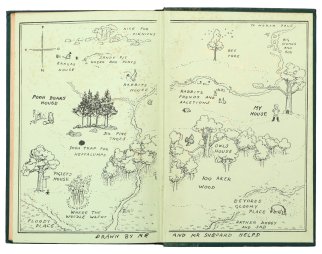 NICE FOR
PIKNICKS
TO NORTH POLE
BIG
STONES
AND
ROX
BEE
TREE
SANDY PIT
WHERE ROO PLAYS
KANGAS
HOUSE
RABBITS
HOUSE
RABBITS
FRENDS AND
RALETIONS
POOH BEARS
HOUSE
MY
HOUSE
SIX PINE
TREES
POOH TRAP FOR
HEFFALUMPS
OWLS
HOUSE
PIGLETS
HOUSE
100 AKER
WOOD
WHERE THE
WOOZLE WASNT
FLOODY
PLACE
EEYORES
GLOOMY
PLACE
RATHER BOGGY
AND SAD
DRAWN BY ME
AND MR SHEPARD HELPD